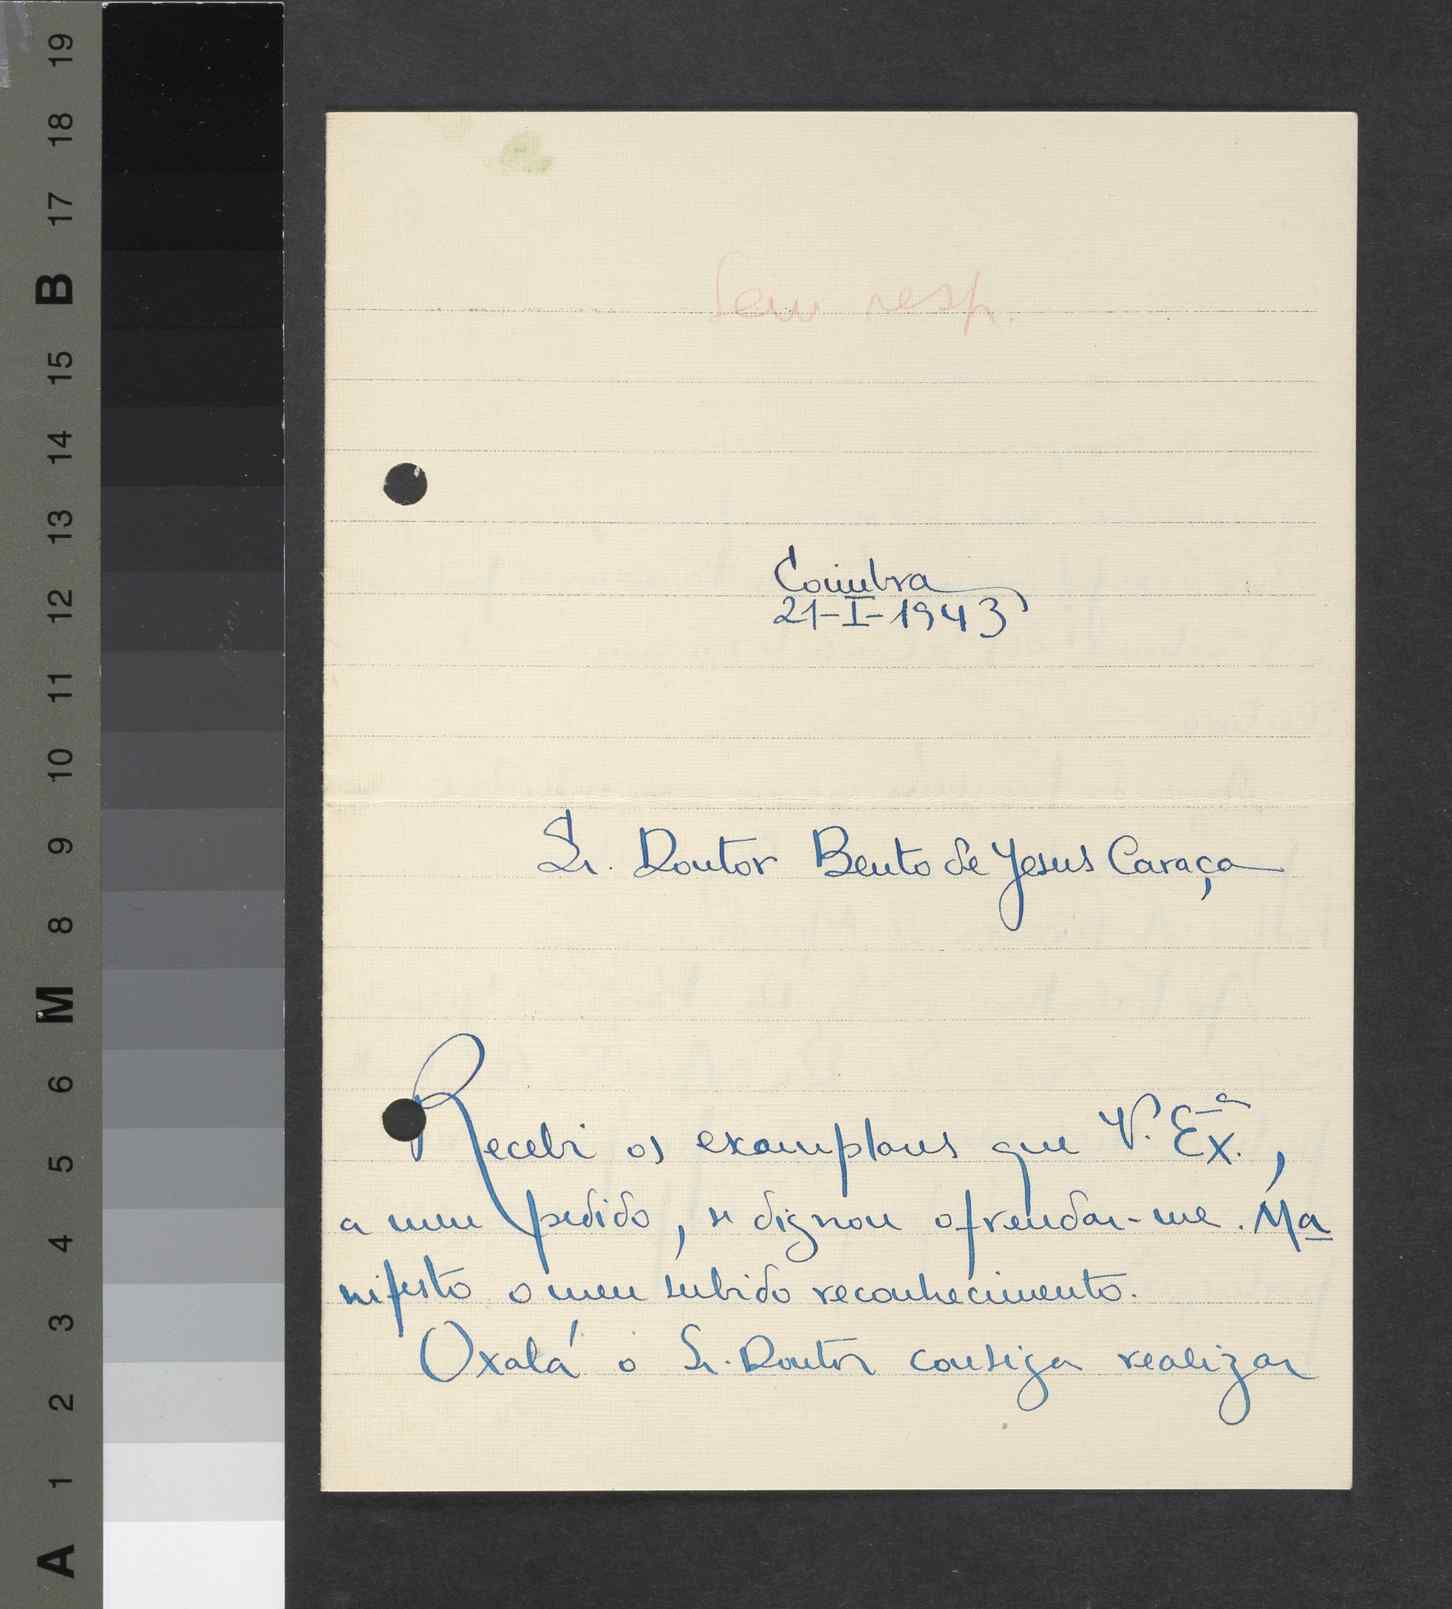 Sem resp.
Coimbra
21-I-1943
Sr. Doutor Bento de Jesus Caraça
Recebi os exemplares que V. Ex.ª,
a meu pedido, se dignou ofrendar-me. Ma
nifesto o meu subido reconhecimento.
Oxalá o Sr. Doutor consiga realizar
A 1 2 3 4 5 6 M 8 9 10 11 12 13 14 15 B 17 18 19